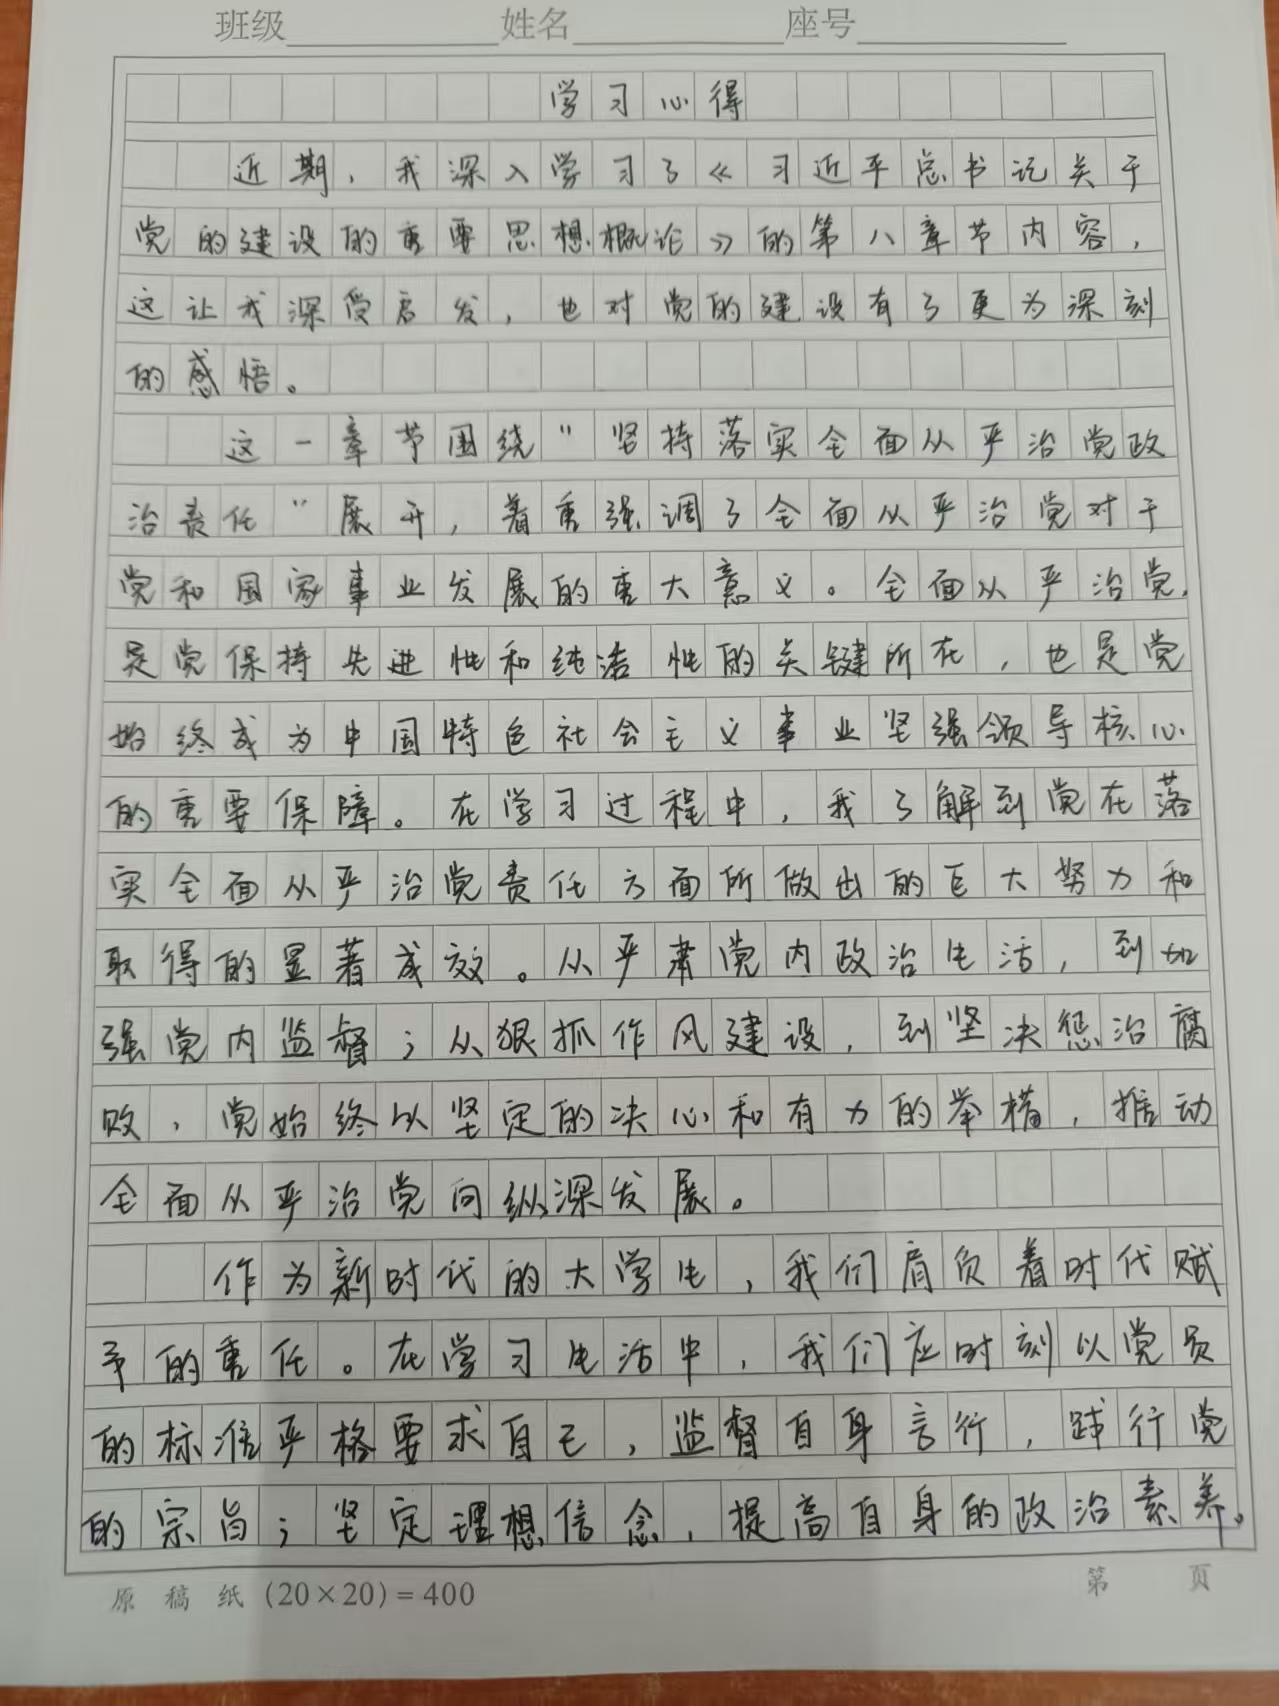 班级 姓名 座号
学习心得
近期，我深入学习了《习近平总书记关于
党的建设的重要思想概论》的第八章节内容，
这让我深受启发，也对党的建设有了更为深刻
的感悟。
这一章节围绕"坚持落实全面从严治党政
治责任"展开，着重强调了全面从严治党对于
党和国家事业发展的重大意义。全面从严治党，
是党保持先进性和纯洁性的关键所在，也是党
始终成为中国特色社会主义事业坚强领导核心
的重要保障。在学习过程中，我了解到党在落
实全面从严治党责任方面所做出的巨大努力和
取得的显著成效。从严肃党内政治生活，到加
强党内监督；从狠抓作风建设，到坚决惩治腐
败，党始终以坚定的决心和有力的举措，推动
全面从严治党向纵深发展。
作为新时代的大学生，我们肩负着时代赋
予的重任。在学习生活中，我们应时刻以党员
的标准严格要求自己，监督自身言行，践行党
的宗旨；坚定理想信念，提高自身的政治素养。
原稿纸(20×20)=400 第 页